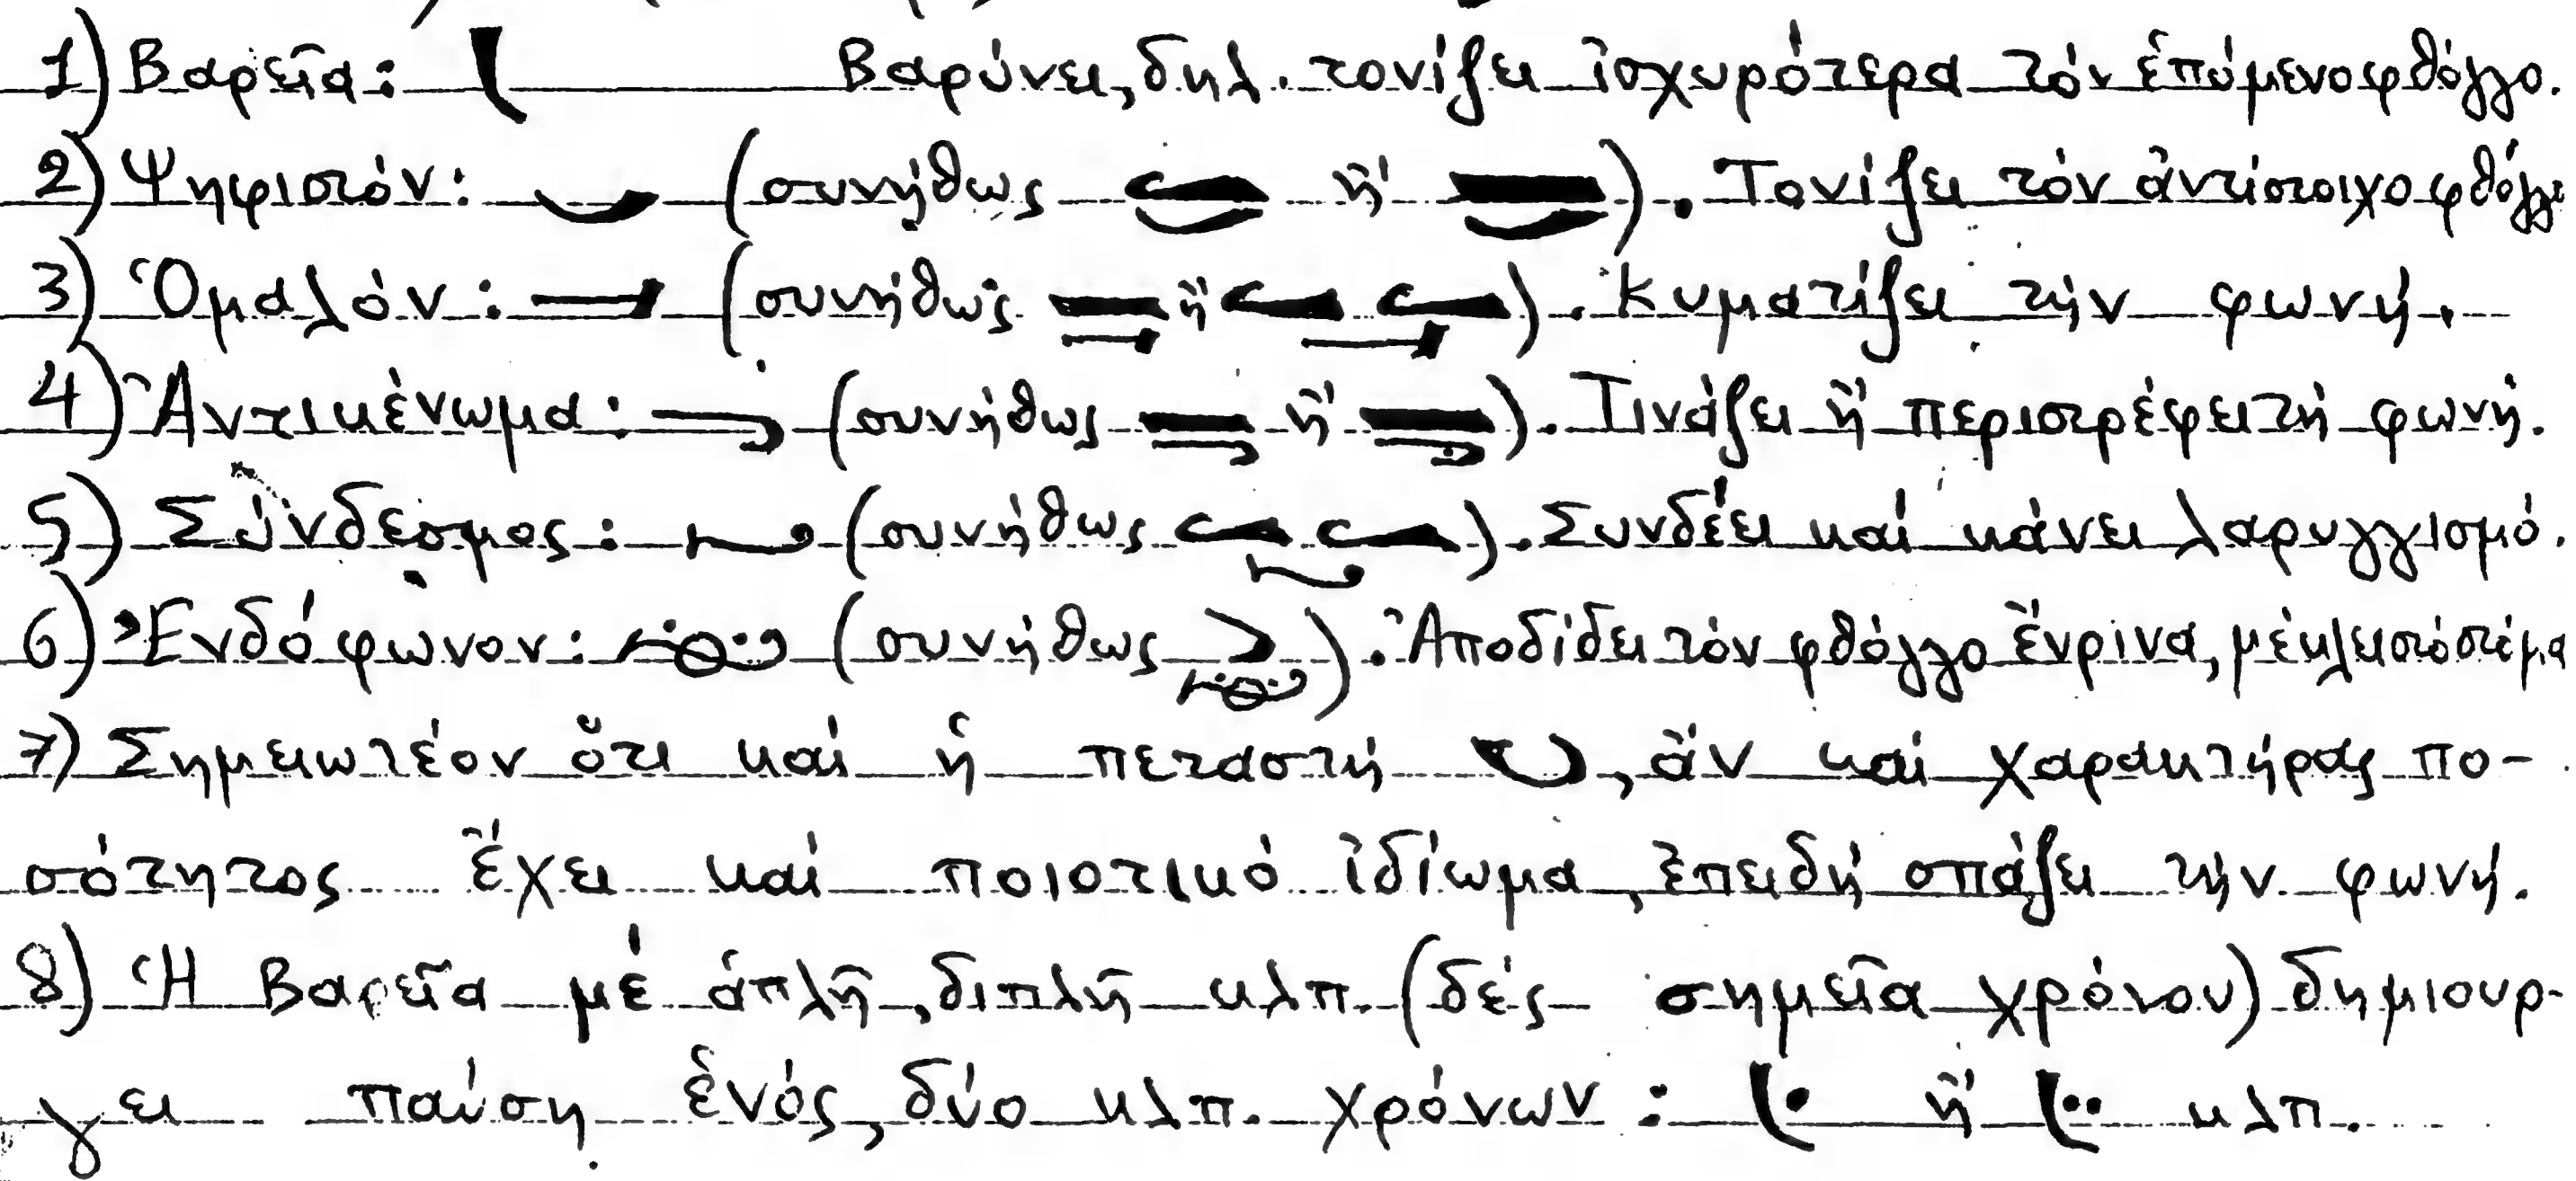 1) Βαρεῖα: Βαρύνει, δηλ. τονίζει ἰσχυρότερα τόν ἑπόμενο φθόγγο.
2) Ψηφιστόν: (συνήθως ἤ). Τονίζει τόν ἀντίστοιχο φθόγγο
3) Ὁμαλόν: (συνήθως ἤ). Κυματίζει τήν φωνή.
4) Ἀντικένωμα: (συνήθως ἤ). Τινάζει ἤ περιστρέφει τή φωνή.
5) Σύνδεσμος: (συνήθως). Συνδέει καί κάνει λαρυγγισμό.
6) Ἐνδόφωνον: (συνήθως). Ἀποδίδει τόν φθόγγο ἔνρινα, μέ κλειστό στόμα
7) Σημειωτέον ὅτι καί ἡ πεταστή , ἄν καί χαρακτήρας πο-
σότητος ἔχει καί ποιοτικό ἰδίωμα, ἐπειδή σπάζει τήν φωνή.
8) Ἡ Βαρεῖα μέ ἁπλῆ, διπλῆ κλπ. (δές σημεῖα χρόνου) δημιουρ-
γει παύση ἑνός, δύο κλπ. χρόνων: ἤ κλπ.